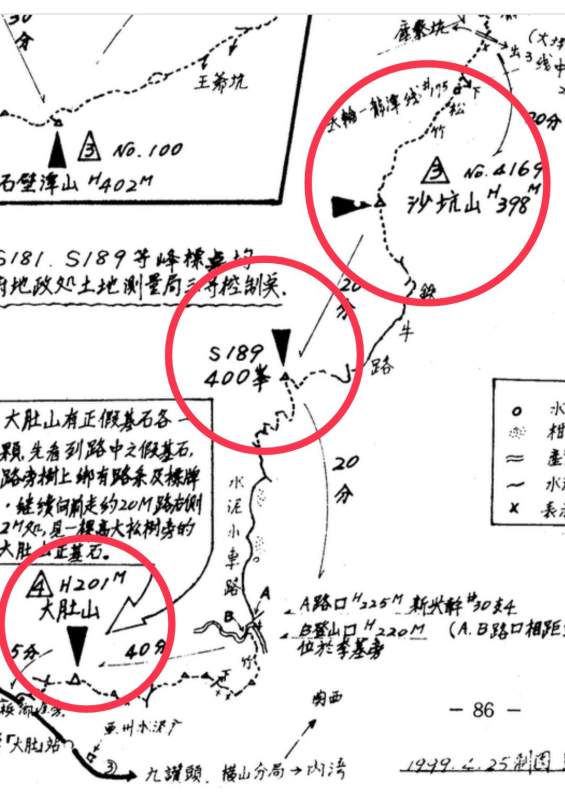 30
分
王爺坑
3 No.100
石壁潭山 H402M
出
3线中
大輪一龍潭线#175
下
松
竹
20分
3 No.4169
沙坑山 H398M
S181. S189等峰標点均
府地政处土地測量局三等控制点.
20
分
鉄
牛
路
S189
400峯
大肚山有正假基石各一
顆,先看到路中之假基石,
路旁樹上綁有路条及標牌
,继續向前走約20M路右側
2M处,見一棵高大松樹旁的
大肚山正基石。
20
分
水泥小車路
竹
下
4 H201M
大肚山
5分
40分
A
B
A路口 H225M 新北幹#30支4
B登山口 H220M (A.B路口相距
位於李墓旁
関西
亞州水泥厂
大肚站
③
九讃頭. 横山分局→内湾
o 水
柑
産
水泥
x
- 86 -
1999.4.25制图